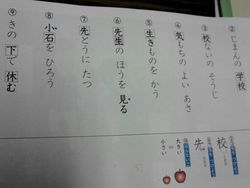 ②じまんの 学校
③校ないの そうじ
④気もちの よい あさ
⑤生きものを かう
⑥先生の ほうを 見る
⑦先とうに たつ
⑧小石を ひろう
⑨きの 下で 休む
校
先
大きい
小さい